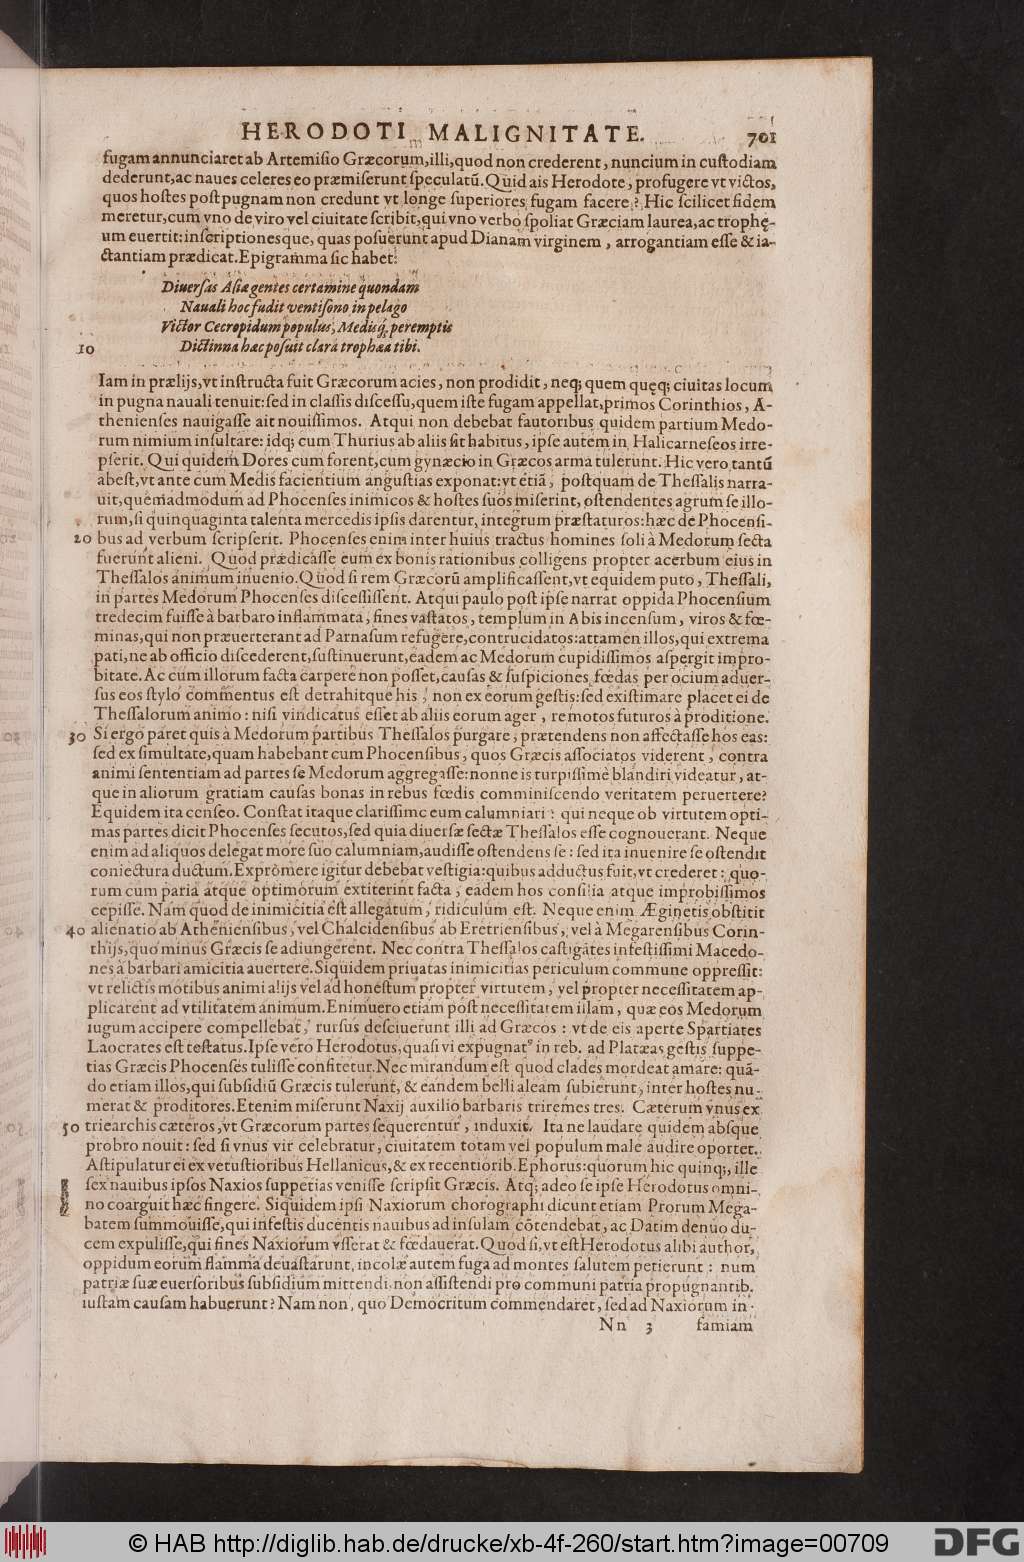 HERODOTI MALIGNITATE. 701
fugam annunciaret ab Artemisio Græcorum, illi, quod non crederent, nuncium in custodiam
dederunt, ac naues celeres eo præmiserunt speculatū. Quid ais Herodote, profugere vt victos,
quos hostes post pugnam non credunt vt longe superiores fugam facere? Hic scilicet fidem
meretur, cum vno de viro vel ciuitate scribit, qui vno verbo spoliat Græciam laurea, ac trophę-
um euertit: inscriptionesque, quas posuerunt apud Dianam virginem, arrogantiam esse & ia-
ctantiam prædicat. Epigramma sic habet:
Diuersas Asiæ gentes certamine quondam
Nauali hoc fudit ventisono in pelago
Victor Cecropidum populus, Medisq́; peremptis
10 Dictinna hæc posuit clara trophæa tibi.
Iam in prælijs, vt instructa fuit Græcorum acies, non prodidit, neq; quem quęq; ciuitas locum
in pugna nauali tenuit: sed in classis discessu, quem iste fugam appellat, primos Corinthios, A-
thenienses nauigasse ait nouissimos. Atqui non debebat fautoribus quidem partium Medo-
rum nimium insultare: idq; cum Thurius ab aliis sit habitus, ipse autem in Halicarneseos irre-
pserit. Qui quidem Dores cum forent, cum gynæcio in Græcos arma tulerunt. Hic vero tantū
abest, vt ante cum Medis facientium angustias exponat: vt etiā, postquam de Thessalis narra-
uit, quemadmodum ad Phocenses inimicos & hostes suos miserint, ostendentes agrum se illo-
rum, si quinquaginta talenta mercedis ipsis darentur, integrum præstaturos: hæc de Phocensi-
20 bus ad verbum scripserit. Phocenses enim inter huius tractus homines soli à Medorum secta
fuerunt alieni. Quod prædicasse eum ex bonis rationibus colligens propter acerbum eius in
Thessalos animum inuenio. Quod si rem Græcorū amplificassent, vt equidem puto, Thessali,
in partes Medorum Phocenses discessissent. Atqui paulo post ipse narrat oppida Phocensium
tredecim fuisse à barbaro inflammata, fines vastatos, templum in Abis incensum, viros & fœ-
minas, qui non præuerterant ad Parnasum refugere, contrucidatos: attamen illos, qui extrema
pati, ne ab officio discederent, sustinuerunt, eadem ac Medorum cupidissimos aspergit impro-
bitate. Ac cum illorum facta carpere non posset, causas & suspiciones fœdas per ocium aduer-
sus eos stylo commentus est detrahitque his, non ex eorum gestis: sed existimare placet ei de
Thessalorum animo: nisi vindicatus esset ab aliis eorum ager, remotos futuros à proditione.
30 Si ergo paret quis à Medorum partibus Thessalos purgare, prætendens non affectasse hos eas:
sed ex simultate, quam habebant cum Phocensibus, quos Græcis associatos viderent, contra
animi sententiam ad partes se Medorum aggregasse: nonne is turpissime blandiri videatur, at-
que in aliorum gratiam causas bonas in rebus fœdis comminiscendo veritatem peruertere?
Equidem ita censeo. Constat itaque clarissime eum calumniari: qui neque ob virtutem opti-
mas partes dicit Phocenses secutos, sed quia diuersæ sectæ Thessalos esse cognouerant. Neque
enim ad aliquos delegat more suo calumniam, audisse ostendens se: sed ita inuenire se ostendit
coniectura ductum. Expromere igitur debebat vestigia: quibus adductus fuit, vt crederet: quo-
rum cum paria atque optimorum extiterint facta, eadem hos consilia atque improbissimos
cepisse. Nam quod de inimicitia est allegatum, ridiculum est. Neque enim Æginetis obstitit
40 alienatio ab Atheniensibus, vel Chalcidensibus ab Eretriensibus, vel à Megarensibus Corin-
thijs, quo minus Græcis se adiungerent. Nec contra Thessalos castigates infestissimi Macedo-
nes à barbari amicitia auertere. Siquidem priuatas inimicitias periculum commune oppressit:
vt relictis motibus animi alijs vel ad honestum propter virtutem, vel propter necessitatem ap-
plicarent ad vtilitatem animum. Enimuero etiam post necessitatem illam, quæ eos Medorum
iugum accipere compellebat, rursus desciuerunt illi ad Græcos: vt de eis aperte Spartiates
Laocrates est testatus. Ipse vero Herodotus, quasi vi expugnatꝰ in reb. ad Platæas gestis suppe-
tias Græcis Phocenses tulisse confitetur. Nec mirandum est quod clades mordeat amare: quā-
do etiam illos, qui subsidiū Græcis tulerunt, & eandem belli aleam subierunt, inter hostes nu-
merat & proditores. Etenim miserunt Naxij auxilio barbaris triremes tres. Cæterum vnus ex
50 triearchis cæteros, vt Græcorum partes sequerentur, induxit. Ita ne laudare quidem absque
probro nouit: sed si vnus vir celebratur, ciuitatem totam vel populum male audire oportet.
Astipulatur ei ex vetustioribus Hellanicus, & ex recentiorib. Ephorus: quorum hic quinq;, ille
sex nauibus ipsos Naxios suppetias venisse scripsit Græcis. Atq; adeo se ipse Herodotus omni-
no coarguit hæc fingere. Siquidem ipsi Naxiorum chorographi dicunt etiam Prorum Mega-
batem summouisse, qui infestis ducentis nauibus ad insulam cōtendebat, ac Datim denuo du-
cem expulisse, qui fines Naxiorum vsserat & fœdauerat. Quod si, vt est Herodotus alibi author,
oppidum eorum flamma deuastarunt, incolæ autem fuga ad montes salutem petierunt: num
patriæ suæ euersoribus subsidium mittendi, non assistendi pro communi patria propugnantib.
iustam causam habuerunt? Nam non, quo Democritum commendaret, sed ad Naxiorum in-
Nn 3 famiam
© HAB http://diglib.hab.de/drucke/xb-4f-260/start.htm?image=00709 DFG